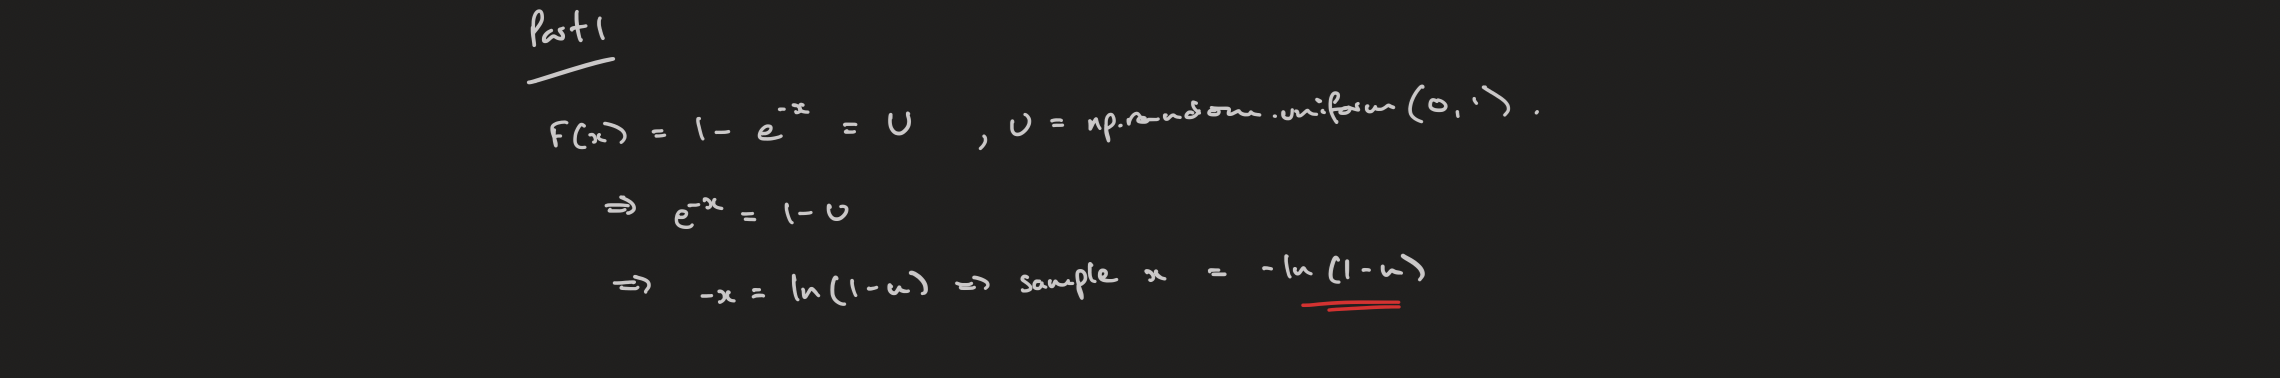 Part 1
F(x) = 1 - e^{-x} = U , U = np.random.uniform(0,1).
⇒ e^{-x} = 1 - U
⇒ -x = ln(1-u) ⇒ sample x = -ln(1-u)